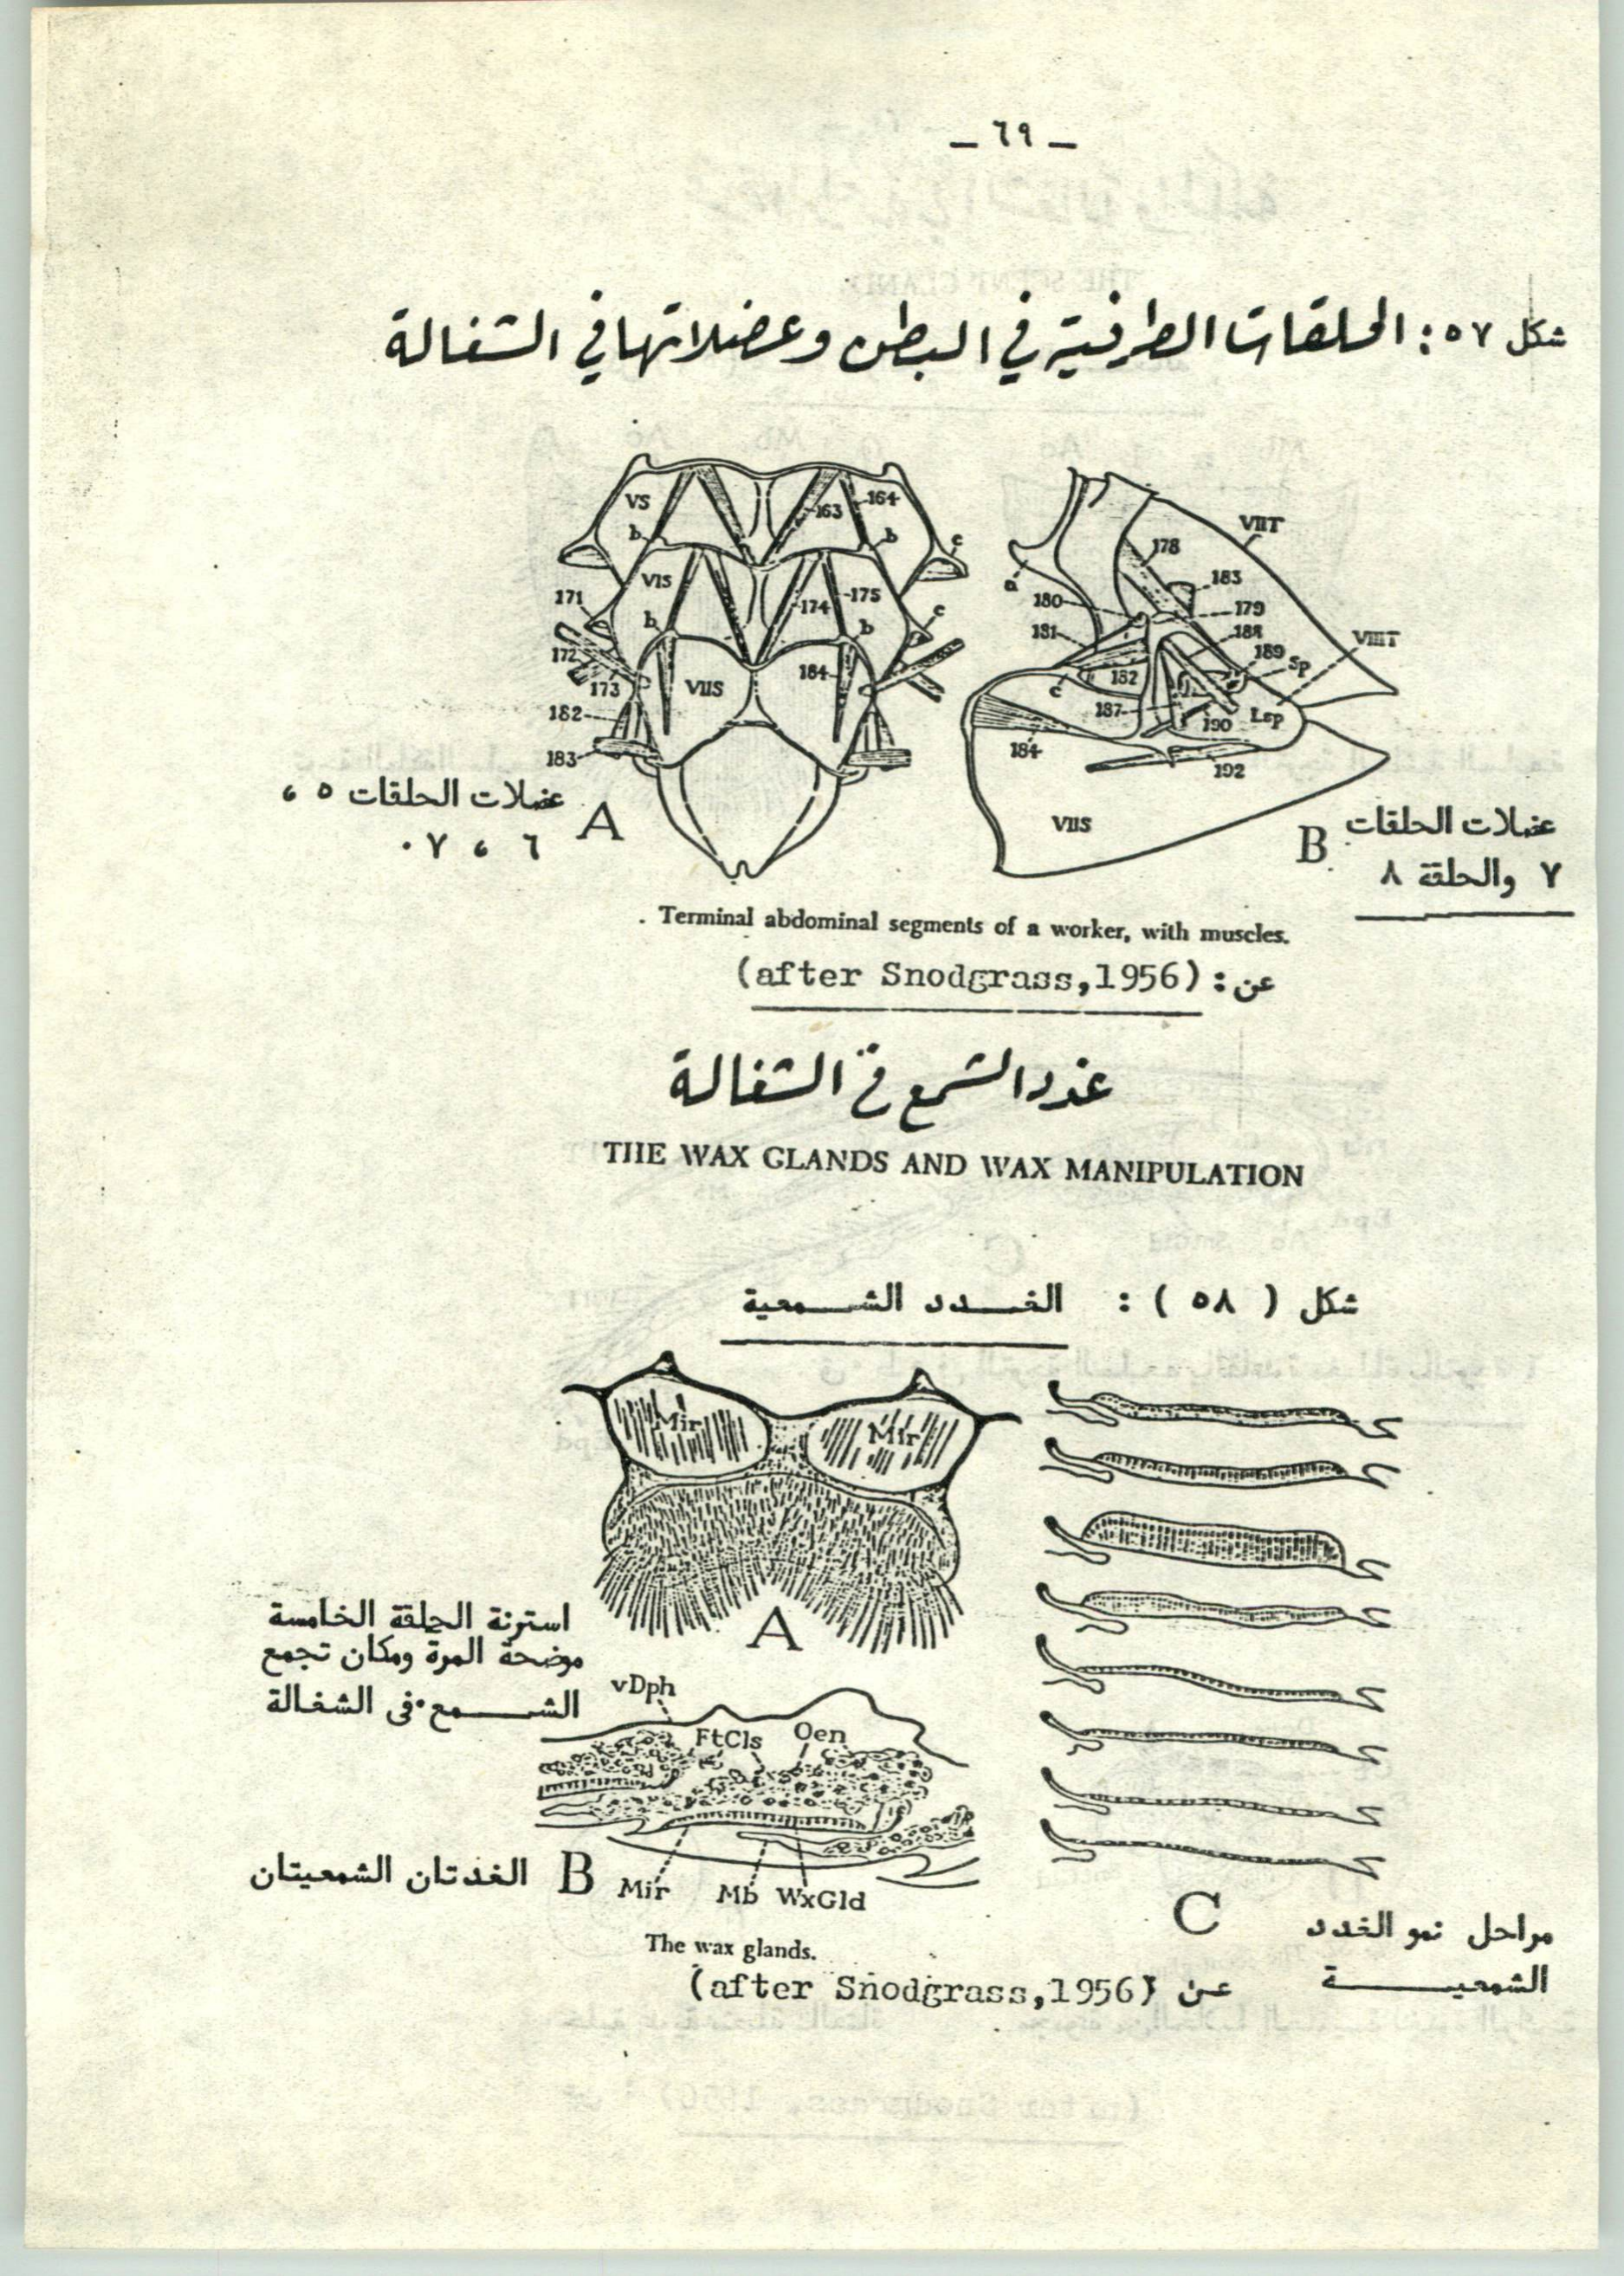 — ٦٩ —
شكل ٥٧: الحلقات الطرفية في البطن وعضلاتها في الشغالة
VS
163
164
b
b
c
VIS
171
174
175
c
b
b
172
173
VIIS
184
182
183
عضلات الحلقات ٥ ،
٦ ، ٧ .
A
VIIT
178
a
183
180
179
181
188
189
Sp
VIIIT
c
182
187
190
Lsp
184
192
VIIS
B
عضلات الحلقات
٧ والحلقة ٨
Terminal abdominal segments of a worker, with muscles.
عن : (after Snodgrass,1956)
غدد الشمع في الشغالة
THE WAX GLANDS AND WAX MANIPULATION
شكل ( ٥٨ ) : الغدد الشمعية
Mir
Mir
A
استرنة الحلقة الخامسة
موضحة المرة ومكان تجمع
الشمع فى الشغالة
vDph
FtCls
Oen
الغدتان الشمعيتان
B
Mir
Mb
WxGld
C
مراحل نمو الغدد
الشمعية
The wax glands.
عن (after Snodgrass,1956)